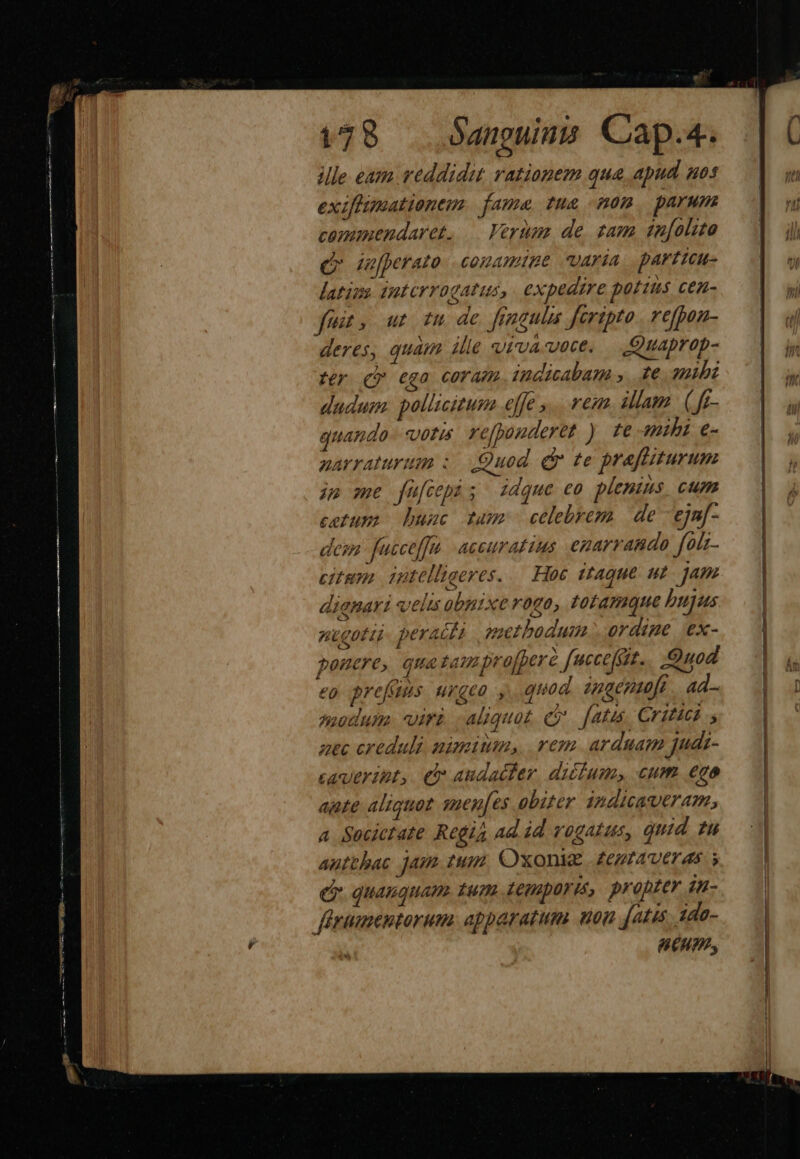 178 Sanguinis Cap.4.
ille eam reddidit rationem quæ apud nos
exiſtimationem famæ tuæ non parum
commendaret. Verùm de tam inſolito
& inſperato conamine varia particu-
latim interrogatus, expedire potiùs cen-
ſuit, ut tu de ſingulis ſcripto reſpon-
deres, quàm ille vivâ voce. Quaprop-
ter & ego coram indicabam, te mihi
dudum pollicitum eſſe, rem illam (ſi-
quando votis reſponderet) te mihi e-
narraturum: Quod & te præſtiturum
in me ſuſcepi; idque eo pleniùs cum
cætum hunc tam celebrem de ejuſ-
dem ſucceſſu accuratiùs enarrando ſoli-
citum intelligeres. Hoc itaque ut jam
dignari velis obnixe rogo, totamque hujus
negotii peracti methodum ordine ex-
ponere, quæ tam proſperè ſucceſſit. Quod
eo preſſiùs urgeo, quod ingenioſi ad-
modum viri aliquot & ſatis Critici,
nec creduli nimiùm, rem arduam judi-
caverint, & audacter dictum, cum ego
ante aliquot menſes obiter indicaveram,
a Societate Regiâ ad id rogatus, quid tu
antehac jam tum Oxoniæ tentaveras;
& quanquam tum temporis, propter in-
ſtrumentorum apparatum non ſatis ido-
neum,